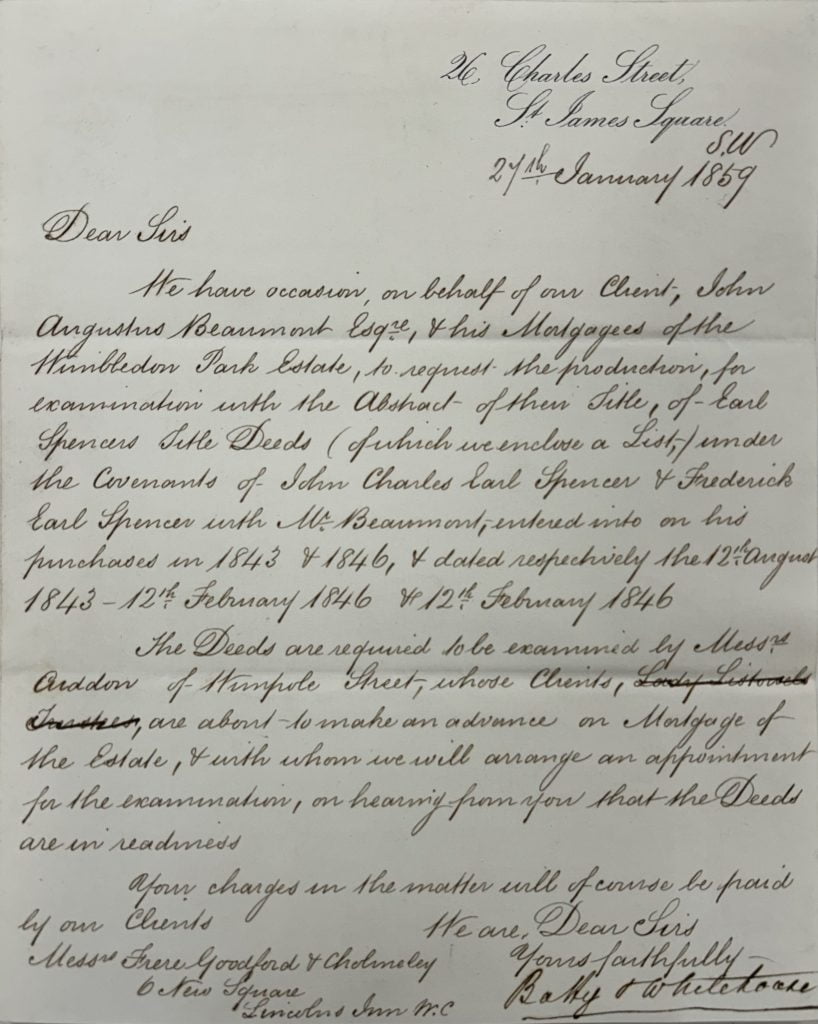 26, Charles Street,
St. James Square.
S.W
27th January 1859
Dear Sirs
We have occasion, on behalf of our Client, John
Augustus Beaumont Esqre, & his Mortgagees of the
Wimbledon Park Estate, to request the production, for
examination with the Abstract of their Title, of Earl
Spencers Title Deeds (of which we enclose a List,) under
the Covenants of John Charles Earl Spencer & Frederick
Earl Spencer with Mr. Beaumont, entered into on his
purchases in 1843 & 1846, & dated respectively the 12th August
1843 - 12th February 1846 & 12th February 1846
The Deeds are required to be examined by Messrs
of Wimpole Street, whose Clients, Lady Listowels
Trustees, are about to make an advance on Mortgage of
the Estate, & with whom we will arrange an appointment
for the examination, on hearing from you that the Deeds
are in readiness
Your charges in the matter will of course be paid
by our Clients
We are, Dear Sirs
Yours faithfully
Messrs Frere Goodford & Cholmeley
6 New Square
Lincolns Inn W.C
& Whitehouse